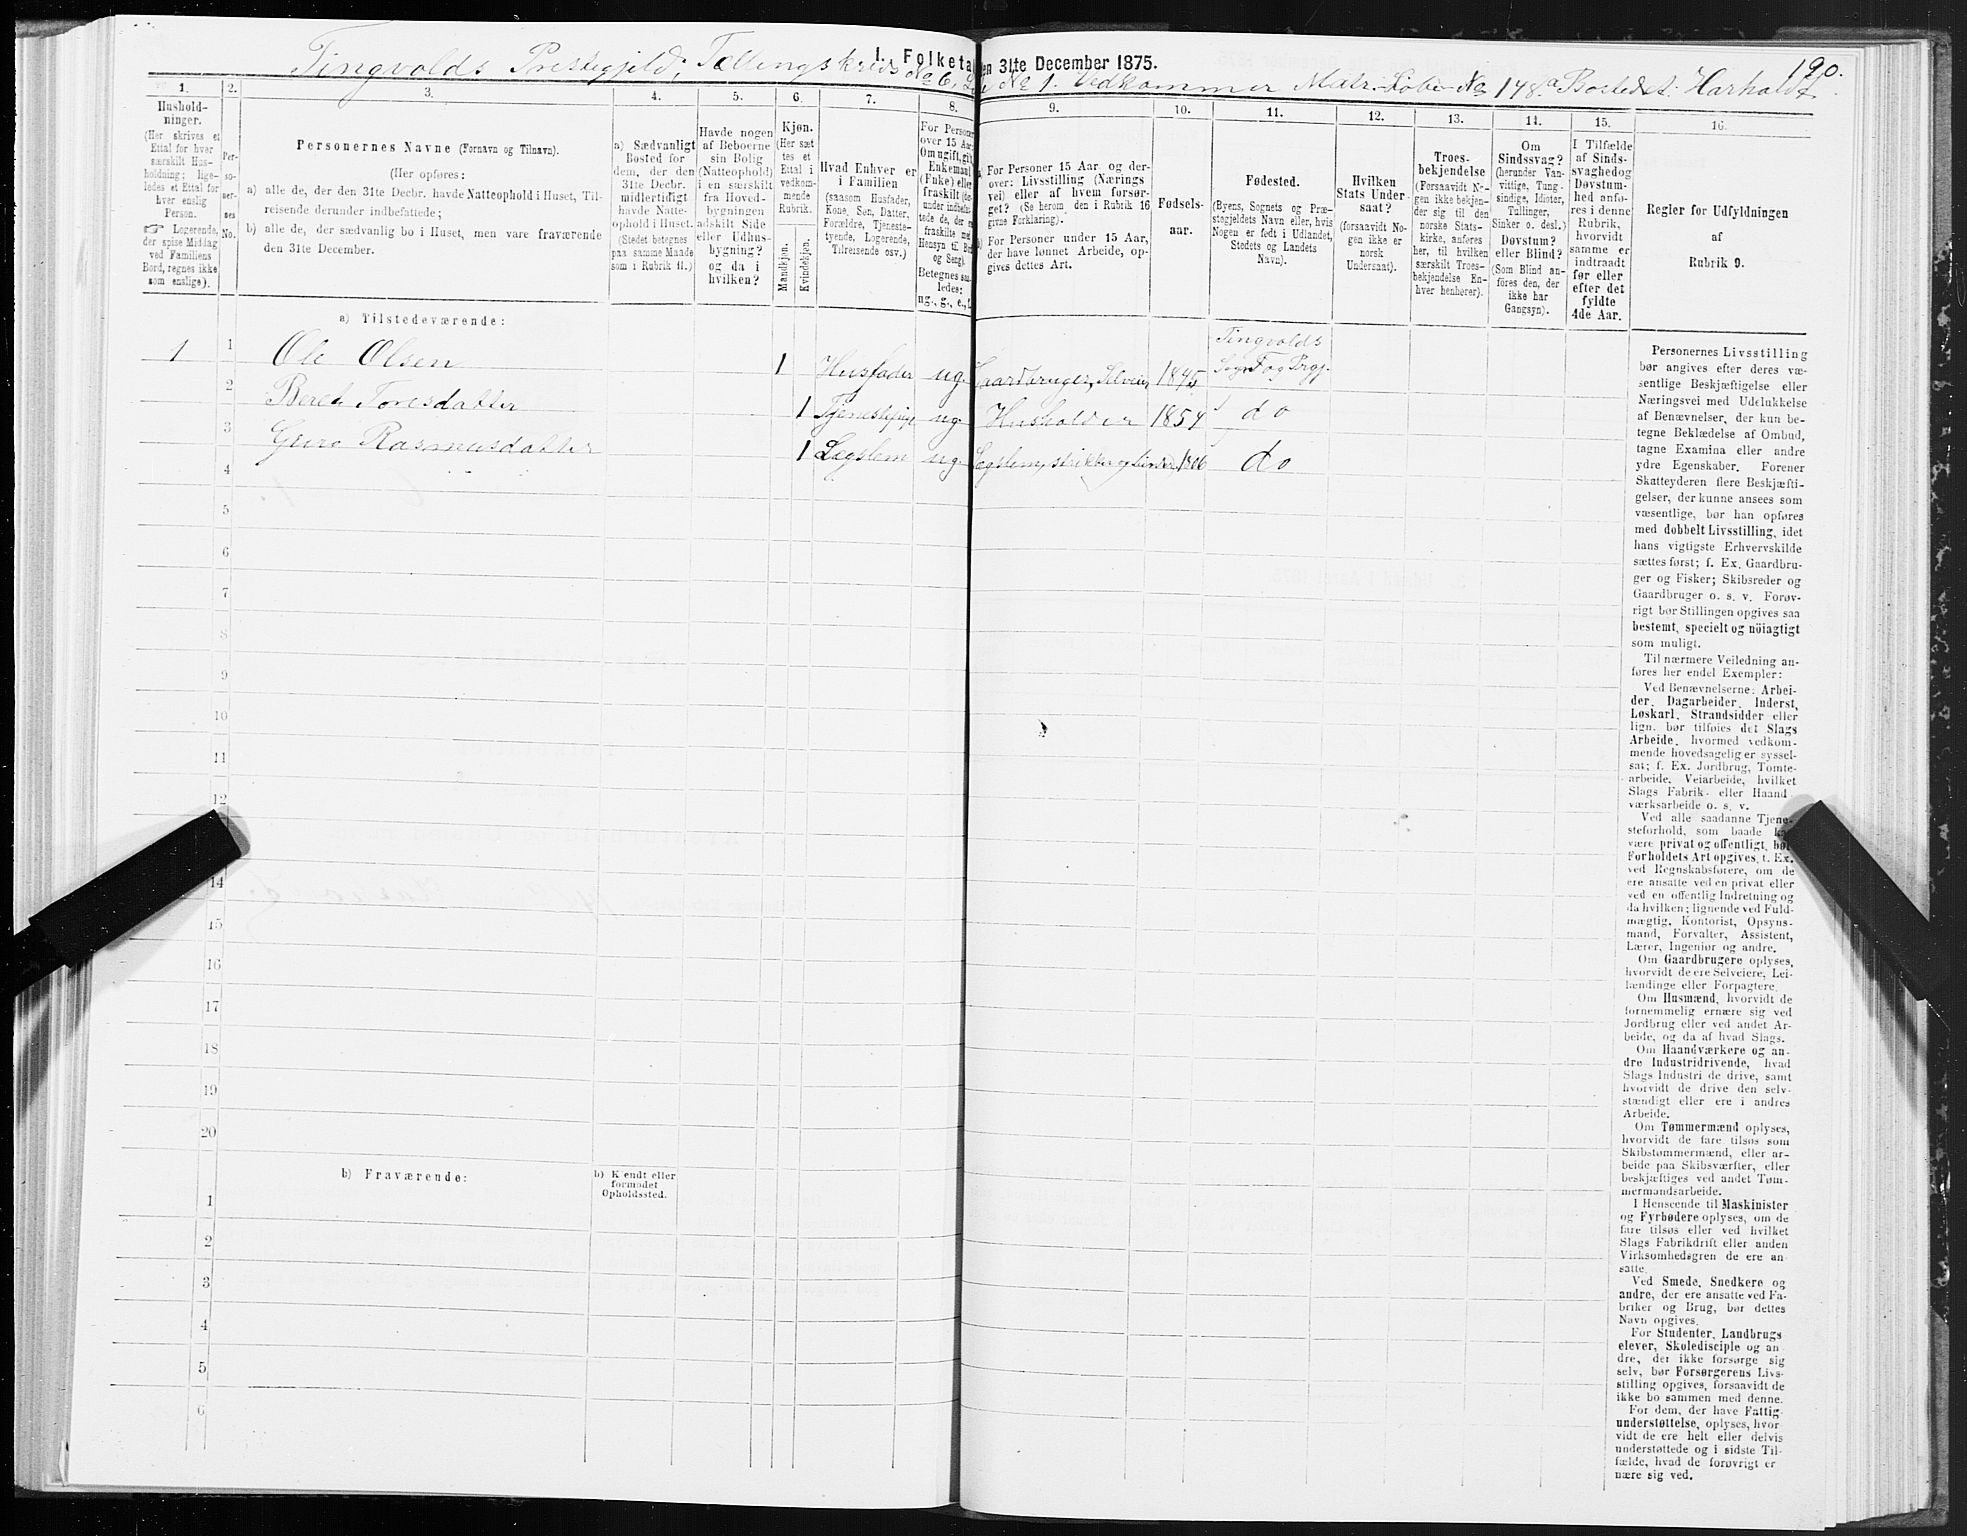 190.
1. Folketa en 31te December 1875.
Tingvolds Prestegjeld, Tællingskreds No 6, No 1. Vedkommer Matr. Løbe No 148a Bostedet: Harholdt
1. 2. 3. 4. 5. 6. 7. 8. 9. 10. 11. 12. 13. 14. 15. 16.
Hushold-
ninger.
(Her skrives et
Ettal for hver
særskilt Hus-
holdning; lige-
ledes et Ettal for
hver enslig
Person.
☞ Logerende,
der spise Middag
ved Familiens
Bord, regnes ikke
som enslige).
Per-
so-
ner-
nes
No.
Personernes Navne (Fornavn og Tilnavn).
(Her opføres:
a) alle de, der den 31te Decbr. havde Natteophold i Huset, Til-
reisende derunder indbefattede;
b) alle de, der sædvanlig bo i Huset, men vare fraværende
den 31te December.
a) Sædvanligt
Bosted for
dem, der den
31te Decbr.
midlertidigt
havde Natte-
ophold i Huset.
(Stedet betegnes
paa samme Maade
som i Rubrik 11.)
Havde nogen
af Beboerne
sin Bolig
(Natteophold)
i en særskilt
fra Hoved-
bygningen
adskilt Side
eller Udhus-
bygning?
og da i
hvilken?
Kjøn.
(Her sæt
tes et
Ettal i
vedkom-
mende
Rubrik.
Mandkjøn.
Kvindekjøn.
Hvad Enhver er
i Familien
(saasom Husfader,
Kone, Søn, Datter,
Forældre, Tjeneste-
tyende, Logerende,
Tilreisende osv.)
For Personer
over 15 Aar:
Om ugift, gift,
Enkemand
(Enke) eller
fraskilt
Betegnes saa-
ledes:
ug., g., e.,
For Personer 15 Aar og der-
over: Livsstilling (Nærings
vei) eller af hvem forsør-
get? (Se herom den i Rubrik 16
givne Forklaring).
For Personer under 15 Aar,
der have lønnet Arbeide, op-
gives dettes Art.
Fødsels-
aar.
Fødested.
(Byens, Sognets og Præ-
stegjeldets Navn eller, hvis
Nogen er født i Udlandet,
Stedets og Landets
Navn).
Hvilken
Stats Under-
saat?
(forsaavidt No-
gen ikke er
norsk
Undersaat).
Troes-
bekjendelse
(Forsaavidt No-
gen ikke bekjen-
der sig til den
norske Stats-
kirke, anføres
her, til hvilken
særskilt Troes-
bekjendelse En-
hver henhører).
Om
Sindssvag?
(herunder Van-
vittige, Tung-
sindige, Idioter,
Tullinger,
Sinker o. desl.)
Døvstum?
eller Blind?
(Som Blind an-
føres den, der
ikke har
Gangsyn).
I Tilfælde
af Sinds-
svaghed og
Døvstum-
hed anfø-
res i denne
Rubrik,
hvorvidt
samme er
indtraadt
før eller
efter det
fyldte
4de Aar.
Regler for Udfyldningen
af
Rubrik 9.
a) Tilstedeværende:
1 1 Ole Olsen 1 Husfader ug Gaardbruger, Selveier 1845 Tingvolds Sogn og Prgj.
2 Beret Toresdatter 1 Tjenestepige ug Husholder 1854 do
3 Guro Rasmusdatter 1 Lægslem ug Lægslem, strikker og binder, 1806 do
4
5
6
7
8
9
10
11
12
14
15
16
17
18
19
20
b) Fraværende:
b) Kjendt eller
formodet
Opholdssted.
1
2
3
4
5
6
Personernes Livsstilling
bør angives efter deres væ-
sentlige Beskjæftigelse eller
Næringsvei med Udelukkelse
af Benævnelser, der kun be-
tegne Beklædelse af Ombud,
tagne Examina eller andre
ydre Egenskaber. Forener
Skatteyderen flere Beskjæfti-
gelser, der kunne ansees som
væsentlige, bør han opføres
med dobbelt Livsstilling, idet
hans vigtigste Erhvervskilde
sættes først; f. Ex. Gaardbru-
ger og Fisker; Skibsreder og
Gaardbruger o. s. v. Forøv-
rigt bør Stillingen opgives saa
bestemt, specielt og nöiagtigt
som muligt.
Til nærmere Veiledning an-
føres her endel Exempler:
Ved Benævnelserne: Arbei-
der, Dagarbeider, Inderst,
Løskarl, Strandsidder eller
lign. bør tilføies det Slags
Arbeide, hvormed vedkom-
mende hovedsagelig er syssel-
sat; f. Ex. Jordbrug, Tomte-
arbeide, Veiarbeide, hvilket
Slags Fabrik- eller Haand
værksarbeide o. s. v.
Ved alle saadanne Tjene-
steforhold, som baade
være privat og offentligt, bør
Forholdets Art opgives, t. Ex.
ved Regnskabsførere, om de
ere ansatte ved en privat eller
ved en offentlig Indretning og
da hvilken; lignende ved Fuld-
mægtig, Kontorist, Opsyns-
mand, Forvalter, Assistent,
Lærer, Ingeniør og andre.
Om Gaardbrugere oplyses,
hvorvidt de ere Selveiere, Lei-
lændinge eller Forpagtere.
Om Husmænd, hvorvidt de
fornemmelig ernære sig ved
Jordbrug eller ved andet Ar-
beide, og da af hvad Slags.
Om Haandværkere og an-
dre Industridrivende, hvad
Slags Industri de drive, samt
hvorvidt de drive den selv-
stændigt eller ere i andres
Arbeide.
Om Tømmermænd oplyses,
hvorvidt de fare tilsøs som
Skibstømmermænd, eller ar-
beide paa Skibsværfter, eller
beskjæftiges ved andet Tøm-
mermandsarbeide.
I Henseende til Maskinister
og Fyrbødere oplyses, om de
fare tilsøs eller ved hvilket
Slags Fabrikdrift eller anden
Virksomhedsgren de ere an-
satte.
Ved Smede, Snedkere og
andre, der ere ansatte ved Fa-
briker og Brug, bør dettes
Navn opgives.
For Studenter, Landbrugs
elever, Skoledisciple og an
dre, der ikke forsørge sig
selv, bør Forsørgerens Livs-
stilling opgives, forsaavidt de
ikke bo sammen med denne.
For dem, der have Fattig
understøttelse, oplyses, hvor
vidt de ere helt eller delvis
understøttede og i sidste Til-
fælde, hvad de forøvrigt er
nære sig ved.